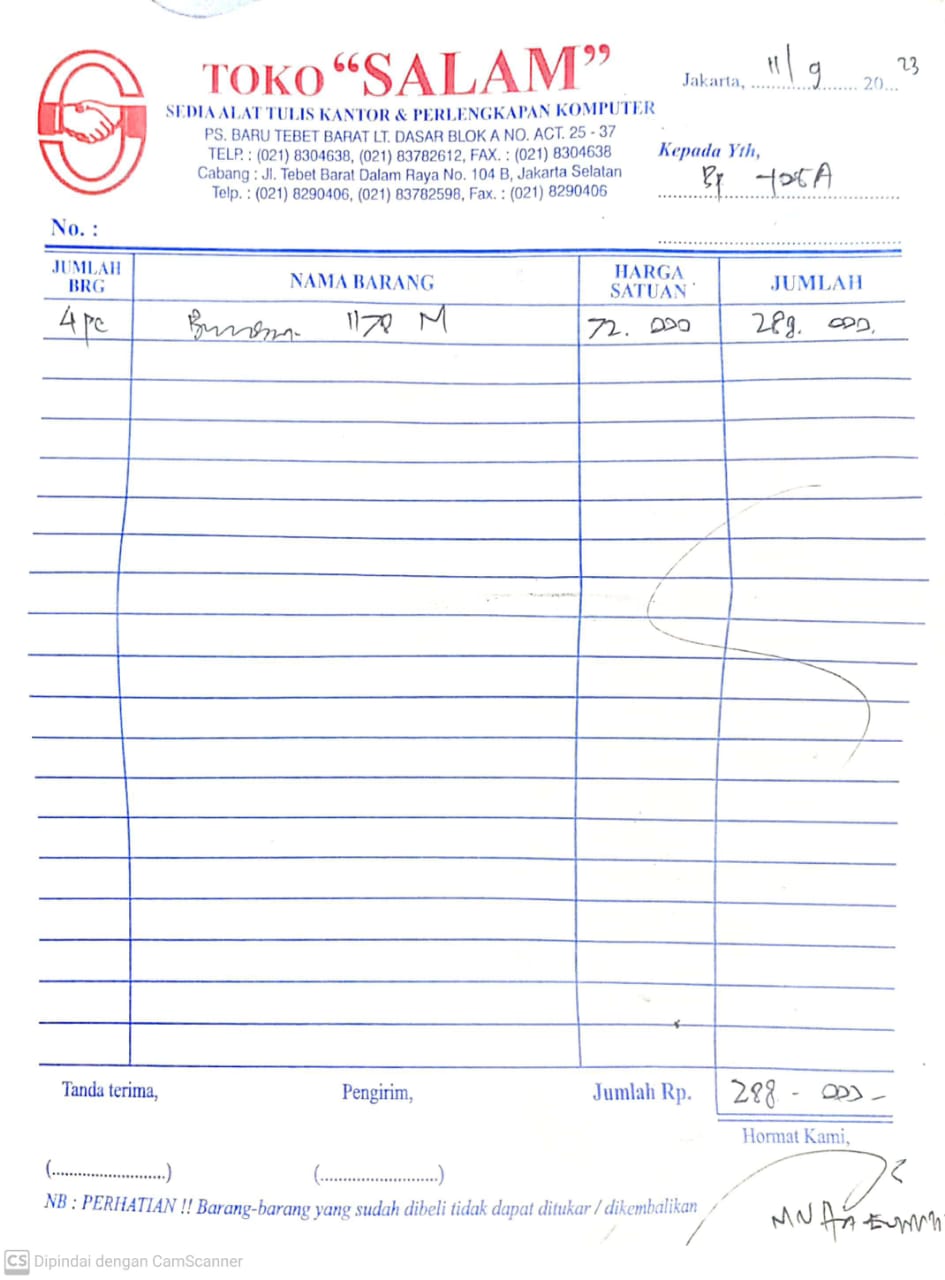 TOKO “SALAM”
SEDIA ALAT TULIS KANTOR & PERLENGKAPAN KOMPUTER
PS. BARU TEBET BARAT LT. DASAR BLOK A NO. ACT. 25 - 37
TELP. : (021) 8304638, (021) 83782612, FAX. : (021) 8304638
Cabang : Jl. Tebet Barat Dalam Raya No. 104 B, Jakarta Selatan
Telp. : (021) 8290406, (021) 83782598, Fax. : (021) 8290406
Jakarta, 11/9 20 23
Kepada Yth,
Bp
No. :
JUMLAH BRG NAMA BARANG HARGA SATUAN JUMLAH
4 pc 1170 M 72.000 288.000.
Tanda terima, Pengirim, Jumlah Rp. 288 - 000 -
Hormat Kami,
(..........................) (..........................)
NB : PERHATIAN !! Barang-barang yang sudah dibeli tidak dapat ditukar / dikembalikan
CS Dipindai dengan CamScanner